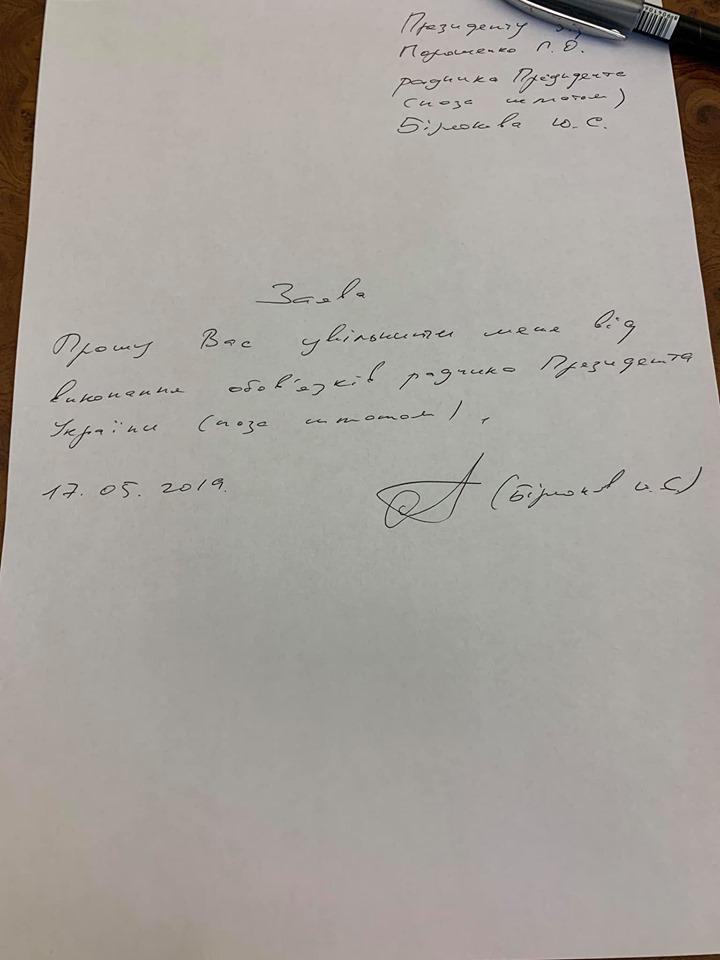 Президенту
Порошенко П. О.
радника Президента
(поза штатом)
Бірюкова Ю. С.
Заява
Прошу Вас увільнити мене від
виконання обов'язків радника Президента
України (поза штатом).
17.05.2019.
(Бірюков Ю.С)